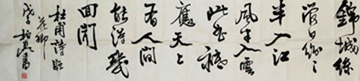 錦城絲
管日紛々
半入江
風半入雲
此曲祇
應天上
有人間
能得幾
回聞
杜甫詩贈
花卿